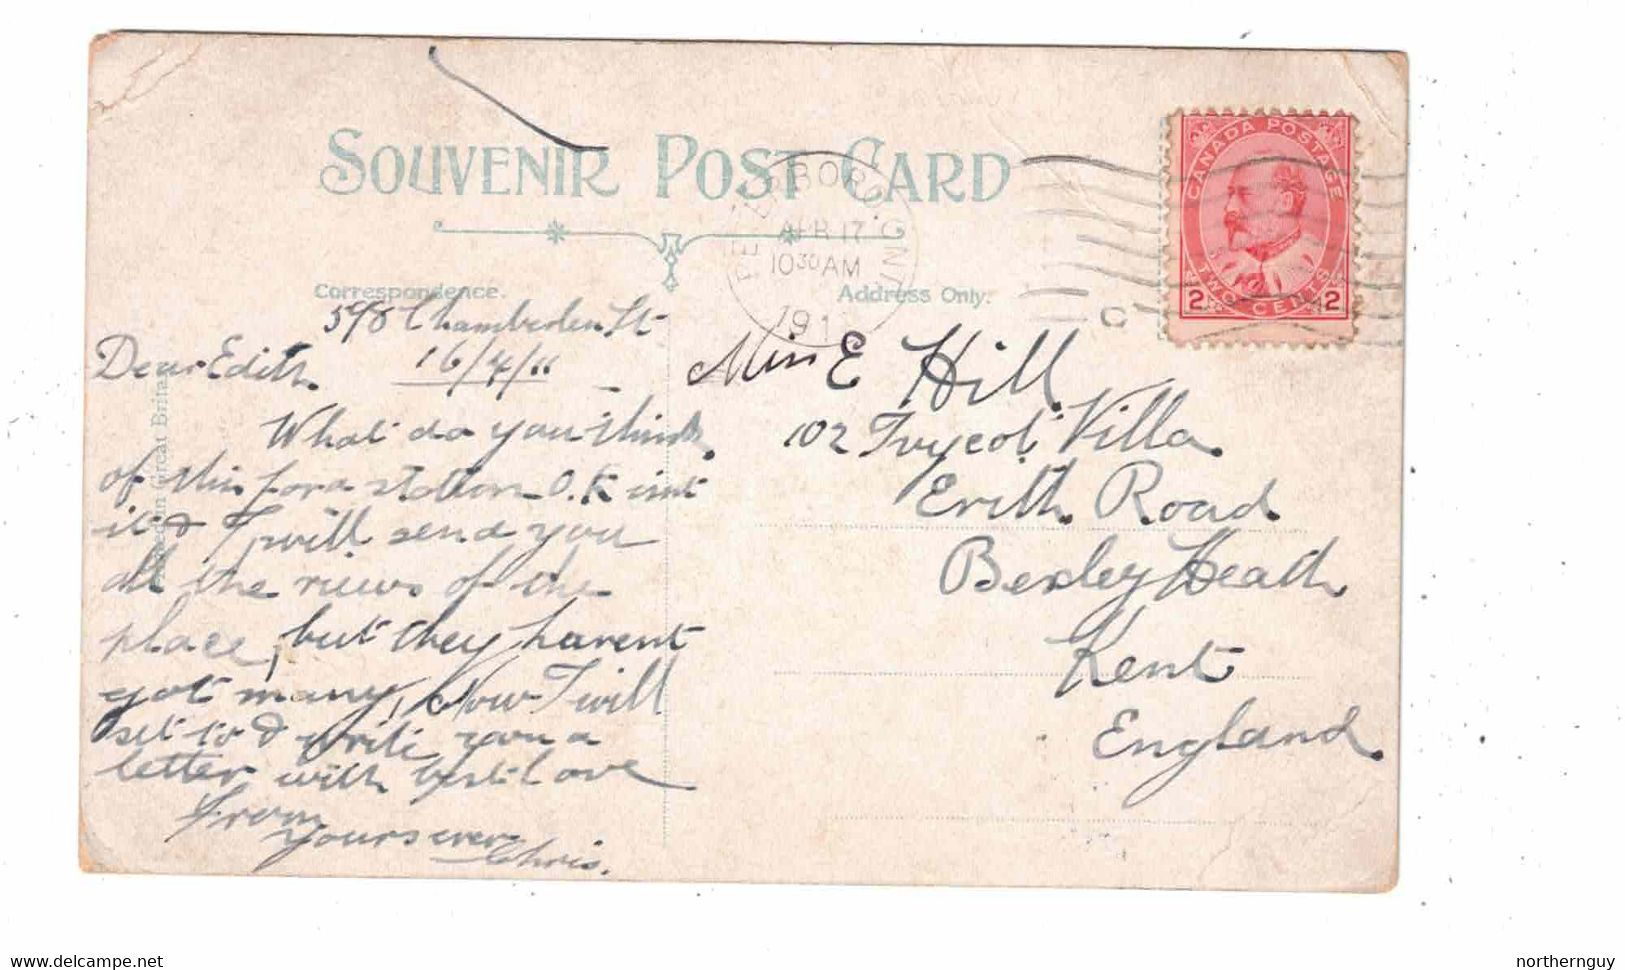 SOUVENIR POST CARD
Correspondence.
Address Only.
PETERBORO, ONT
APR 17
10 30 AM
191
CANADA POSTAGE
TWO CENTS
2 2
C
598 Chamberlen St
16/4/11
Dear Edith
What do you think
of this for a station O.K isnt
it & I will send you
all the views of the
place, but they havent
got many, Now I will
set to & write you a
letter with best love
from
yours ever
Chris.
Miss E Hill
102 Ivycot Villa
Erith Road
Bexley Heath
Kent
England
in Great Britain
northernguy